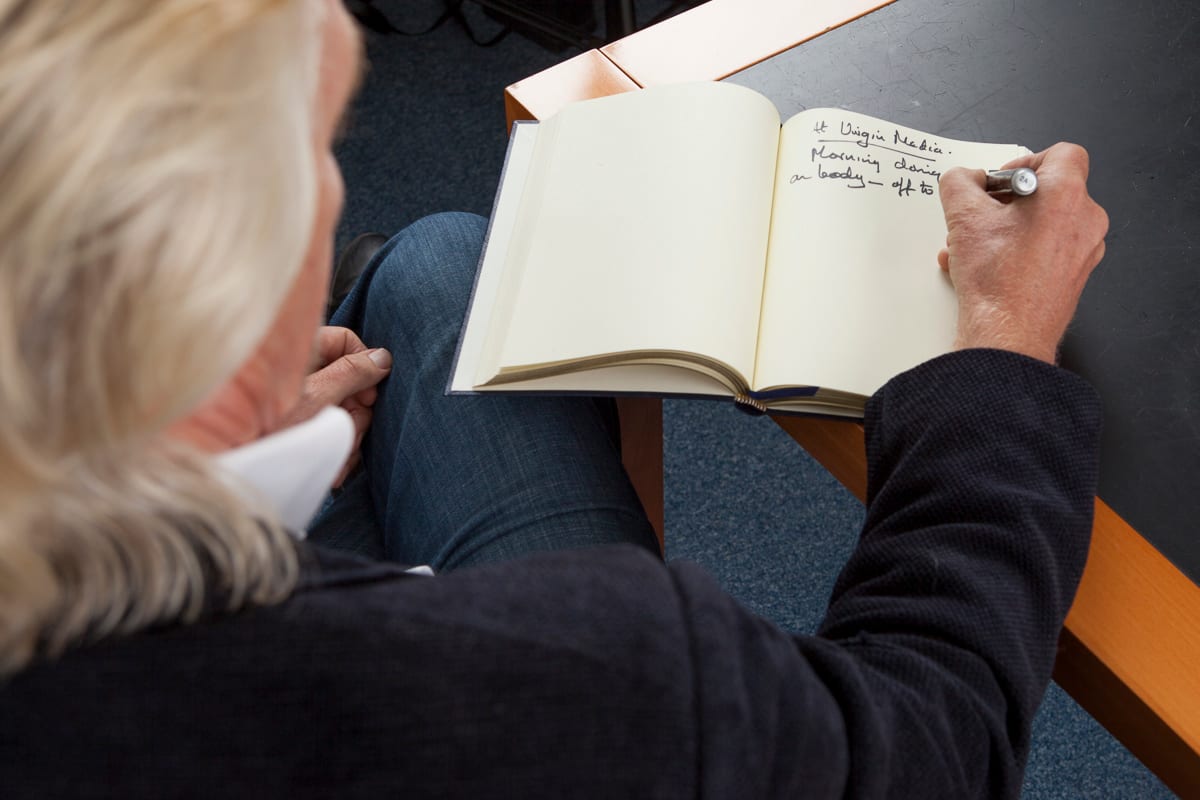 # Virgin Media.
Morning doing
on body — off to